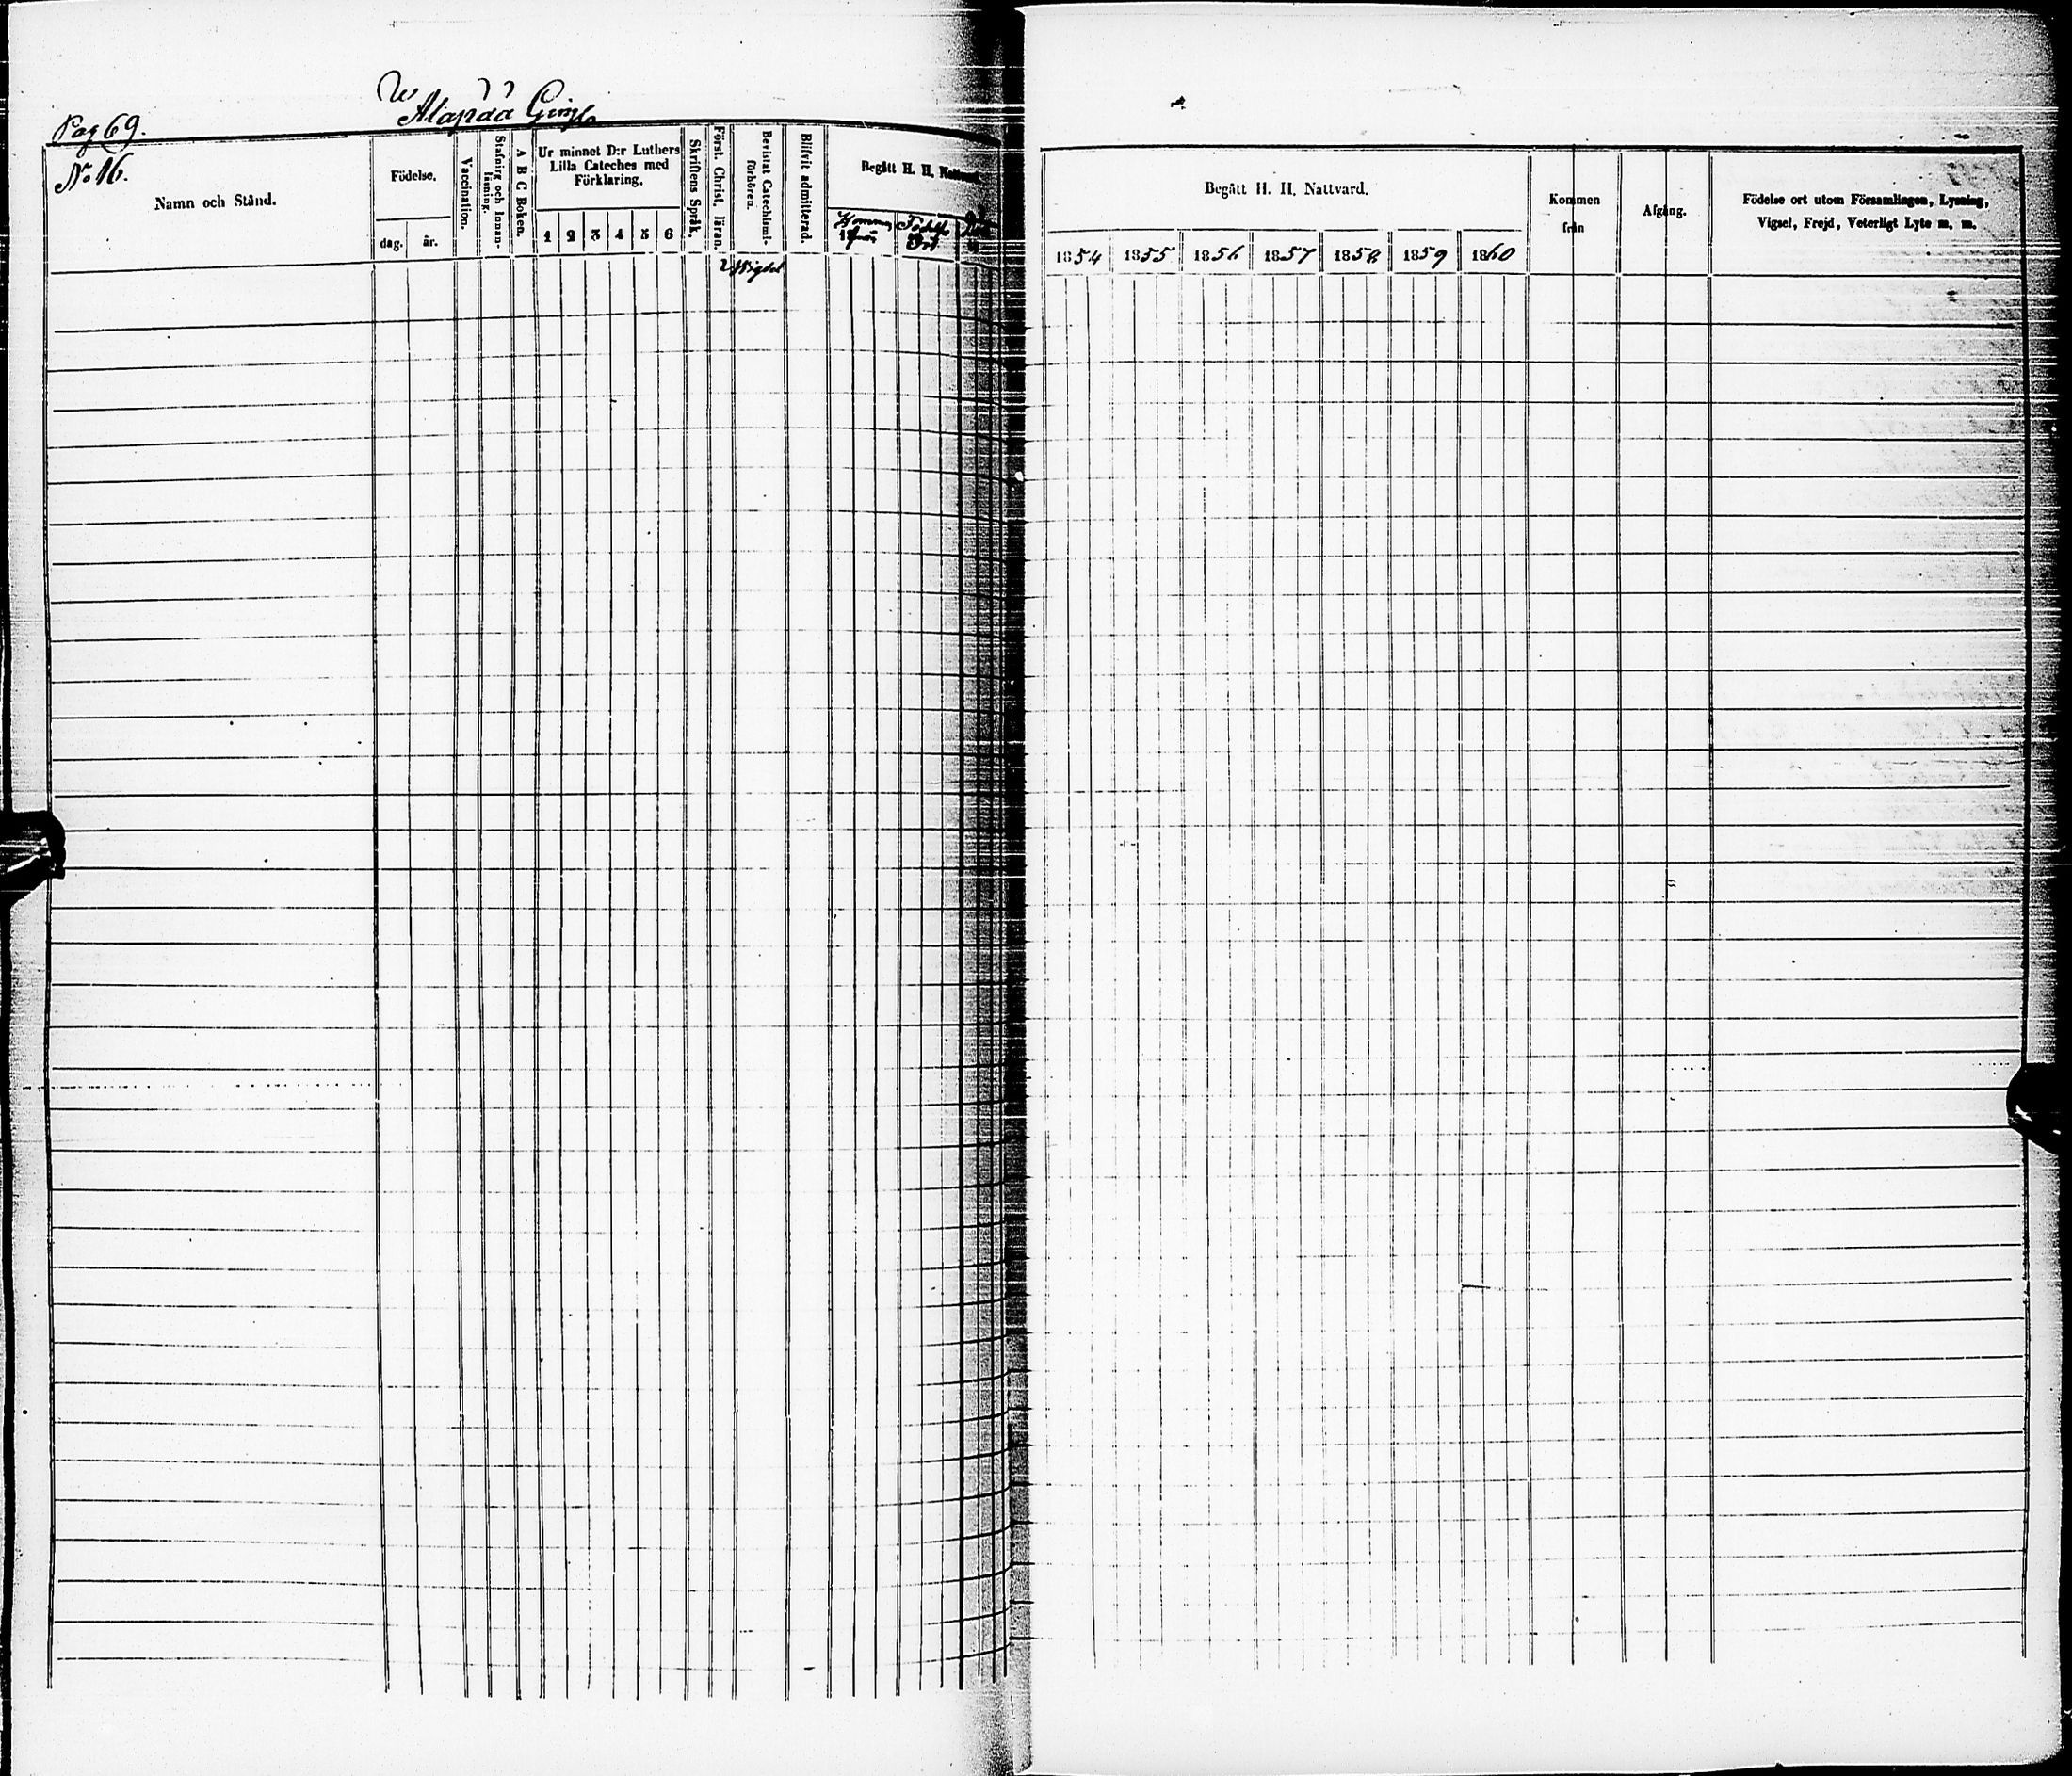 Pag 69.
Alapää
No 16.
Namn och Stånd.
Födelse.
dag.
år.
Vaccination.
Stafning och Innan-
läsning.
A B C Boken.
Ur minnet D:r Luthers
Lilla Cateches med
Förklaring.
1 2 3 4 5 6
Skriftens Språk.
Först. Christ. läran.
Bevistat Catechismi-
förhören.
Blifvit admitterad.
Begått H. H. Nattvard.
Kommen
från
Födelse
Ort
Begått H. H. Nattvard.
1854 1855 1856 1857 1858 1859 1860
Kommen
från
Afgång.
Födelse ort utom Församlingen, Lysning,
Vigsel, Frejd, Veterligt Lyte m. m.